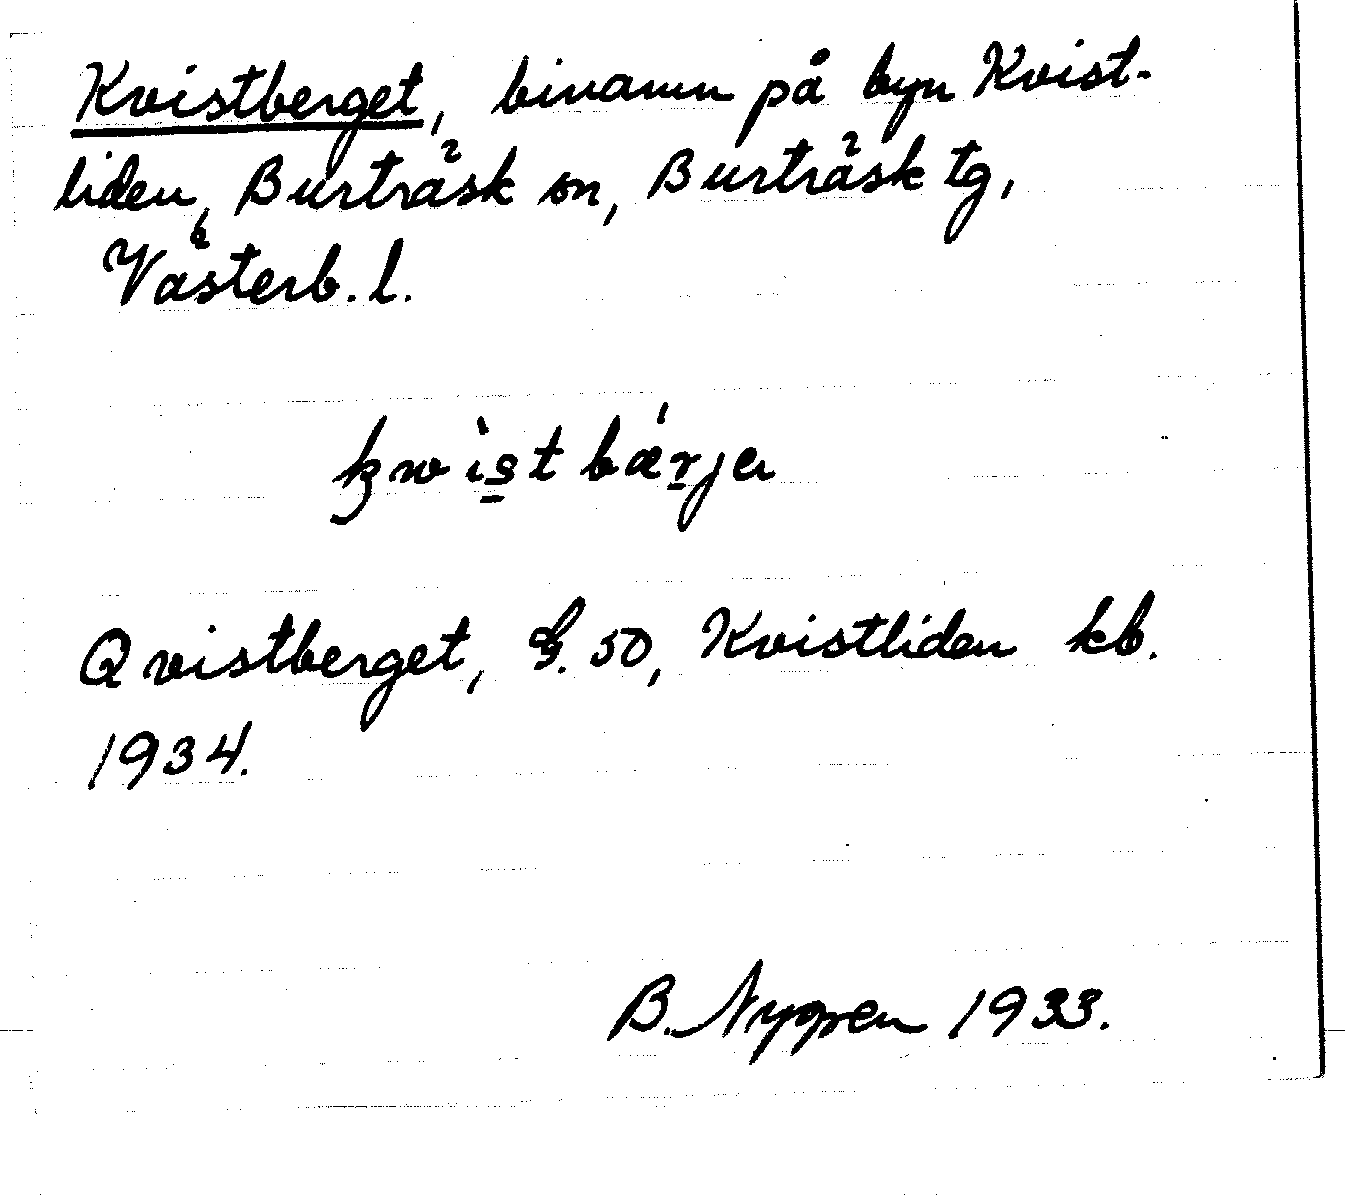 Kvistberget, binamn på byn Kvist-
liden, Burträsk sn, Burträsk tg,
Västerb. l.
kwìstbǽrja
Qvistberget, G. 50, Kvistliden kb.
1934.
B. Nygren 1933.